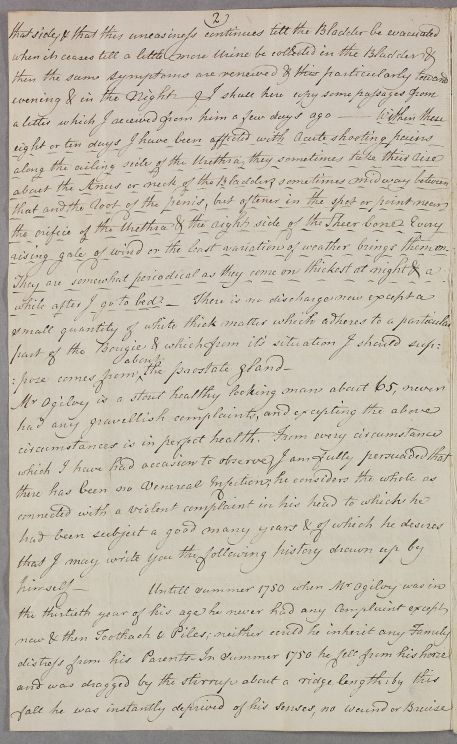 (2)
that side, & that this uneasiness continues till the Bladder be evacuated
when it ceases till a little more Urine be collected in the Bladder &
then the same symptoms are renewed & this particularly toward
evening & in the Night. I shall here copy some passages from
a letter which I received from him a few days ago — Within these
eight or ten days I have been afflicted with acute shooting pains
along the ailing side of the Urethra, they sometimes take their rise
about the Anus or neck of the Bladder, sometimes midway between
that and the Root of the penis, but oftener in the spot or point near
the orifice of the Urethra & the right side of the Sheer bone. Every
rising gale of wind or the least variation of weather brings them on.
They are somewhat periodical as they come on thickest at night & a
while after I go to bed. — There is no discharge now except a
small quantity of white thick matter which adheres to a particular
part of the Bougie & which from its situation I should sup:
:pose comes from about the prostate gland —
Mr Ogilvy is a stout healthy looking man about 65, never
had any gravellish complaints, and excepting the above
circumstances is in perfect health. From every circumstance
which I have had occasion to observe, I am fully persuaded that
there has been no Venereal Infection; he considers the whole as
connected with a violent complaint in his head to which he
had been subject a good many years & of which he desires
that I may write you the following history drawn up by
himself — Untill summer 1750 when Mr Ogilvy was in
the thirtieth year of his age he never had any Complaint except
now & then Toothach & Piles; neither could he inherit any Family
distress from his Parents — In Summer 1750 he fell from his horse
and was dragged by the stirrup about a ridge length; by this
fall he was instantly deprived of his senses, no wound or Bruise